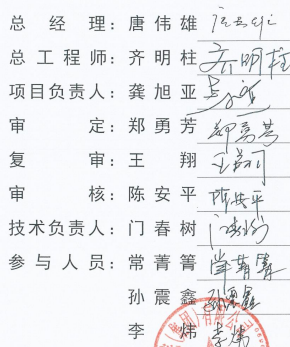 总经理：唐伟雄
总工程师：齐明柱 齐明柱
项目负责人：龚旭亚
审定：郑勇芳 郑勇芳
复审：王翔 王翔
审核：陈安平 陈安平
技术负责人：门春树 门春树
参与人员：常菁菁 常菁菁
孙震鑫 孙震鑫
李炜 李炜
（集团）有限公司